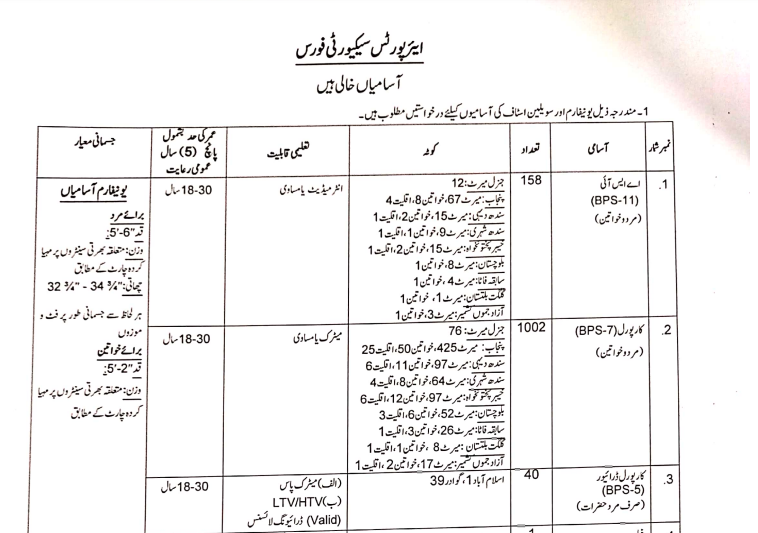 ایئرپورٹس سیکیورٹی فورس
آسامیاں خالی ہیں
1- مندرجہ ذیل یونیفارم اور سویلین اسٹاف کی آسامیوں کیلئے درخواستیں مطلوب ہیں۔
نمبر شمار
آسامی
تعداد
کوٹہ
تعلیمی قابلیت
عمر کی حد بشمول
پانچ (5) سال
عمومی رعایت
جسمانی معیار
1.
اے ایس آئی
(BPS-11)
(مرد و خواتین)
158
جنرل میرٹ: 12
پنجاب: میرٹ 67، خواتین 8، اقلیت 4
سندھ دیہی: میرٹ 15، خواتین 2، اقلیت 1
سندھ شہری: میرٹ 9، خواتین 1، اقلیت 1
خیبر پختونخواہ: میرٹ 15، خواتین 2، اقلیت 1
بلوچستان: میرٹ 8، خواتین 1
سابقہ فاٹا: میرٹ 4، خواتین 1
گلگت بلتستان: میرٹ 1، خواتین 1
آزاد جموں کشمیر: میرٹ 3، خواتین 1
انٹرمیڈیٹ یا مساوی
18-30 سال
یونیفارم آسامیاں
برائے مرد
قد: 5'-6"
وزن: متعلقہ بھرتی سینٹروں پر مہیا
کردہ چارٹ کے مطابق
چھاتی: 32 ¾" - 34 ¾"
ہر لحاظ سے جسمانی طور پر فٹ و
موزوں
برائے خواتین
قد: 5'-2"
وزن: متعلقہ بھرتی سینٹروں پر مہیا
کردہ چارٹ کے مطابق
2.
کارپورل (BPS-7)
(مرد و خواتین)
1002
جنرل میرٹ: 76
پنجاب: میرٹ 425، خواتین 50، اقلیت 25
سندھ دیہی: میرٹ 97، خواتین 11، اقلیت 6
سندھ شہری: میرٹ 64، خواتین 8، اقلیت 4
خیبر پختونخواہ: میرٹ 97، خواتین 12، اقلیت 6
بلوچستان: میرٹ 52، خواتین 6، اقلیت 3
سابقہ فاٹا: میرٹ 26، خواتین 3، اقلیت 1
گلگت بلتستان: میرٹ 8، خواتین 1، اقلیت 1
آزاد جموں کشمیر: میرٹ 17، خواتین 2، اقلیت 1
میٹرک یا مساوی
18-30 سال
3.
کارپورل ڈرائیور
(BPS-5)
(صرف مرد حضرات)
40
اسلام آباد 1، گوادر 39
(الف) میٹرک پاس
(ب) LTV/HTV
(Valid) ڈرائیونگ لائسنس
18-30 سال